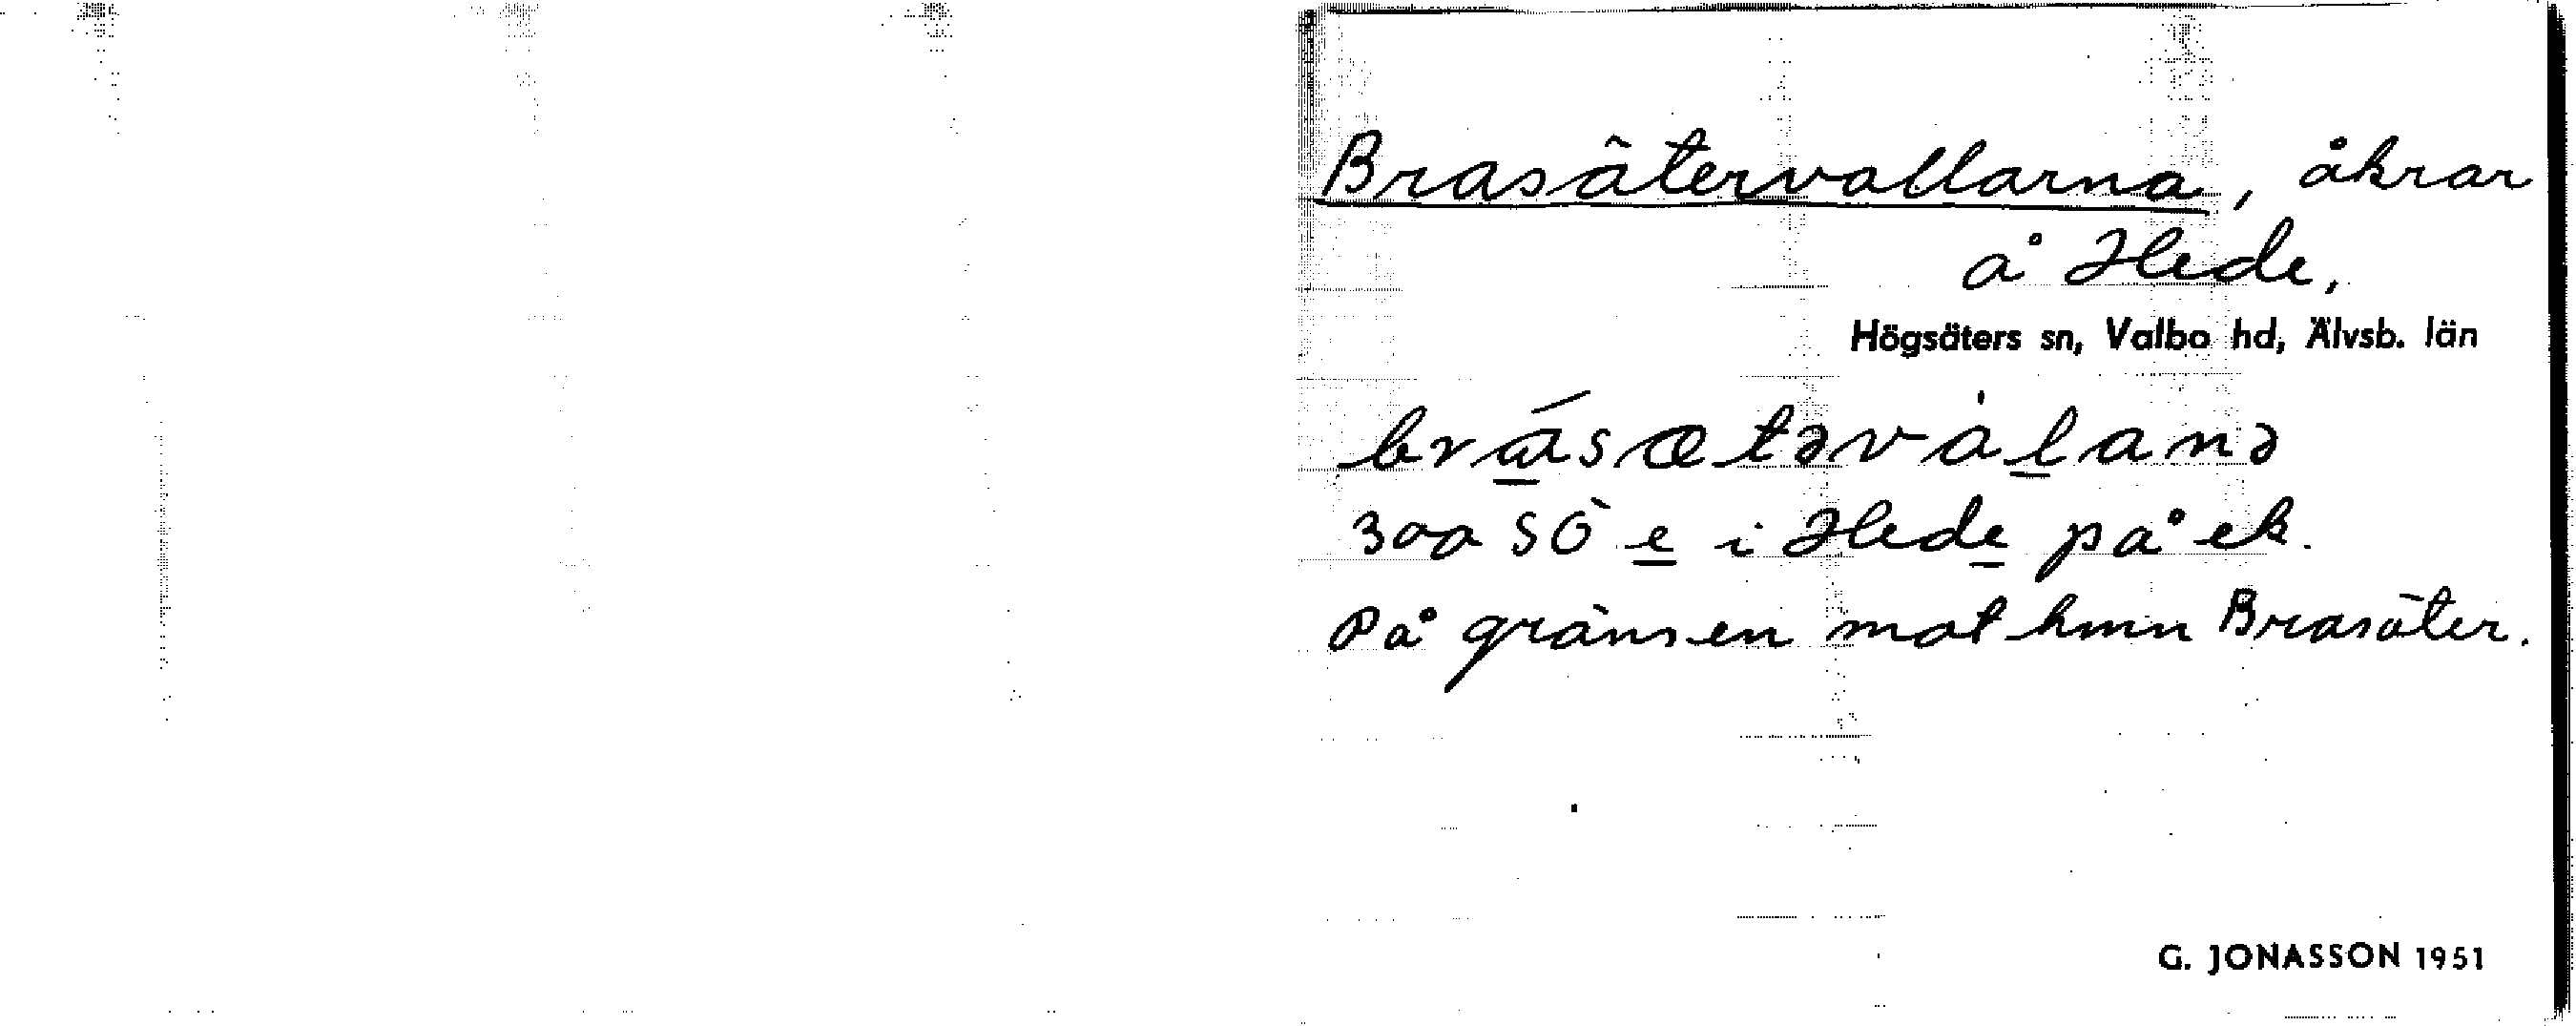 Brasätervallarna, åkrar
å Hede,
Högsäters sn, Valbo hd, Älvsb. län
brásætəvàlanə
300 SÖ e i Hede på ek.
På gränsen mot hmn Brasäter.
G. JONASSON 1951